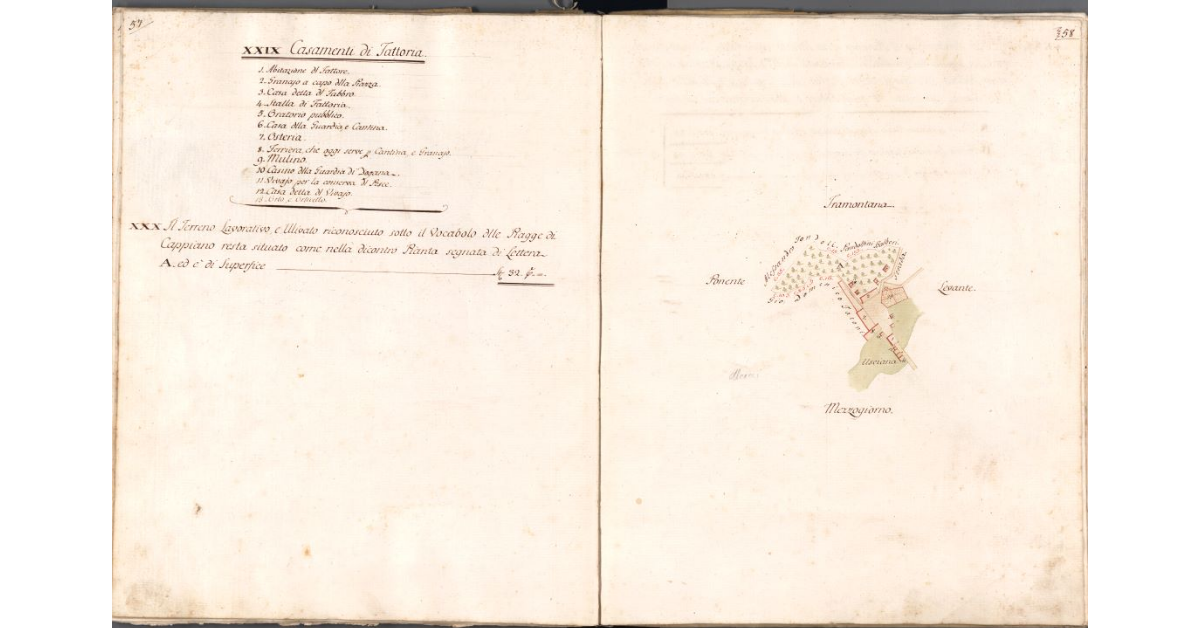 57
XXIX Casamenti di Fattoria.
1. Abitazione del Fattore.
2. Granajo a capo della Piazza
3. Casa detta di Fabbro.
4. Stalla di Fattoria.
5. Oratorio pubblico.
6. Casa della Guardia, e Cantina.
7. Osteria.
8. Ferriera, che oggi serve p Cantina, e Granajo.
9. Mulino.
10 Casino dlla Guardia di Dogana.
11. Vivajo per la conserva di Pesce.
12. Casa detta di Vivajo.
13. Orto e Orticello.
XXX Il Terreno Lavorativo e Ulivato riconosciuto sotto il Vocabolo dlle Piagge di
Cappiano resta situato come nella dicontro Pianta segnata di Lettera
A. ed e' di Superfice 32
58
Tramontana
Ponente
Levante.
Usciana
Mezzogiorno.